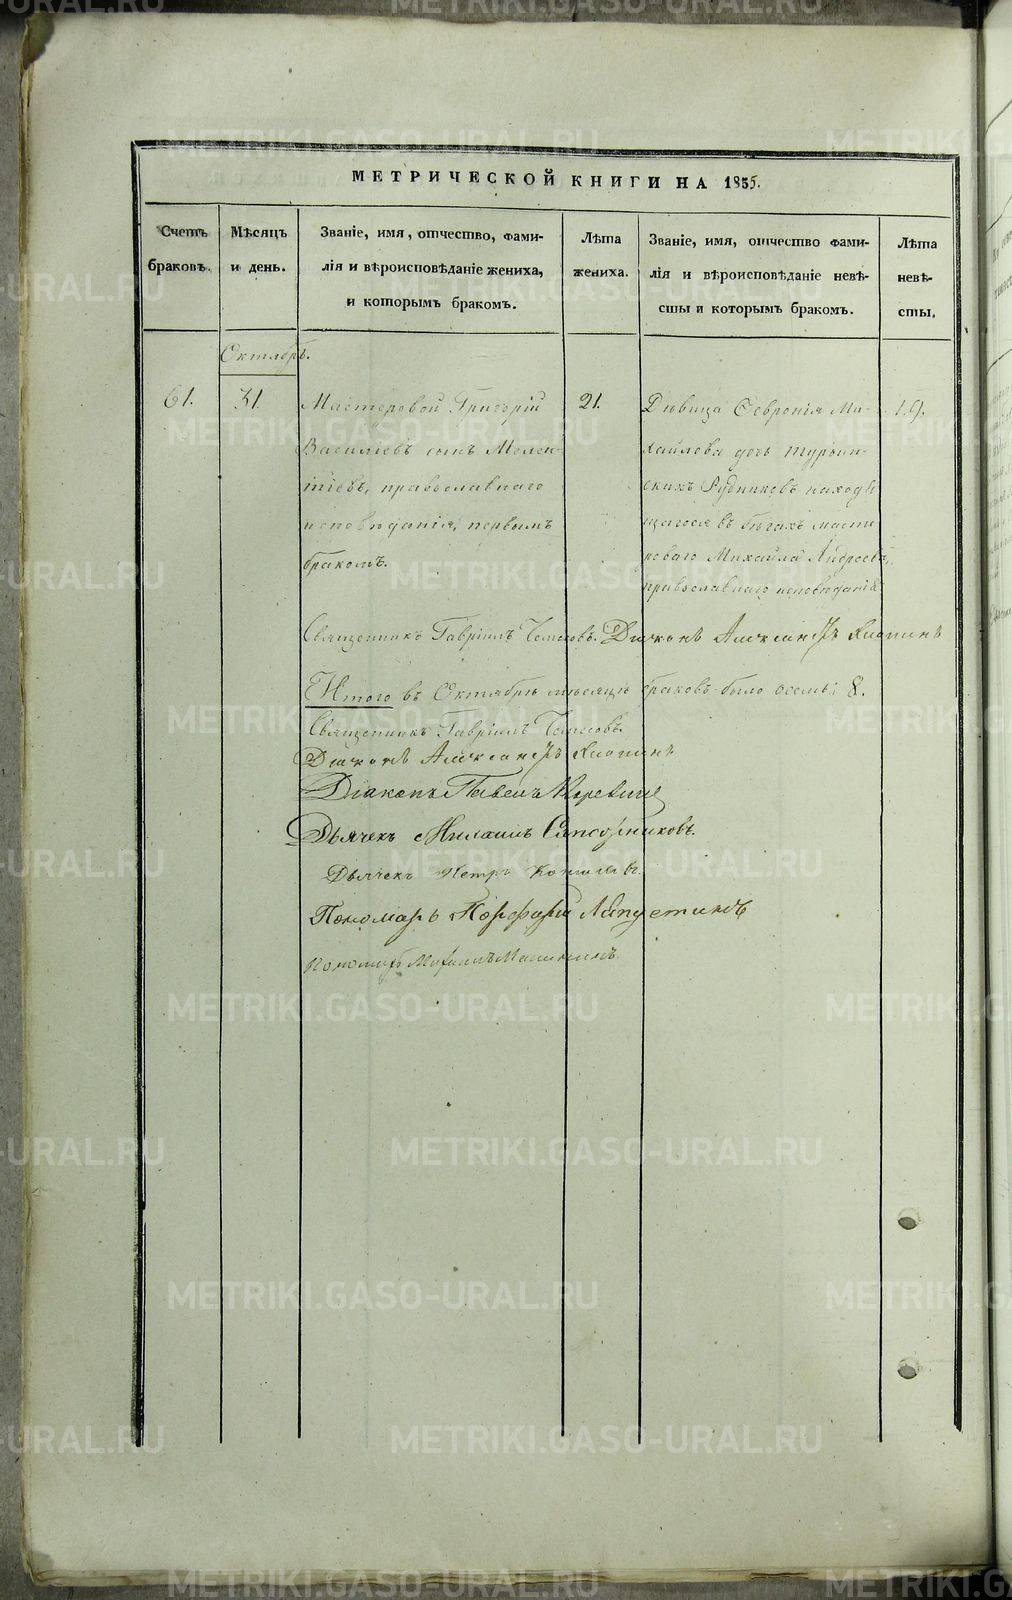 МЕТРИЧЕСКОЙ КНИГИ НА 1855.
Счетъ браковъ.
Мѣсяцъ и день.
Званіе, имя, отчество, фами-
лія и вѣроисповѣданіе жениха,
и которымъ бракомъ.
Лѣта жениха.
Званіе, имя, отчество фами-
лія и вѣроисповѣданіе невѣ-
сты и которымъ бракомъ.
Лѣта невѣ-
сты.
Октябрь.
61.
31.
Мастеровой Григорій
Василіевъ сынъ Мелен-
тіевъ, православнаго
исповѣданія, первымъ
бракомъ.
21.
Дѣвица Феврония Ми-
хайлова дочь Турьин-
скихъ Рудниковъ находя
щагося въ бѣгахъ масте
роваго Михайла Андреева,
православнаго исповѣданія.
19.
Священникъ Гавріилъ Діаконъ Александръ
Итого въ Октябрѣ мѣсяцѣ браковъ было осемь: 8.
Священникъ Гавріилъ
Діаконъ Александръ
Діаконъ Павелъ
Дьячекъ
Дьячекъ Петръ
Пономарь Порфирій
Пономарь Михаилъ
METRIKI.GASO-URAL.RU